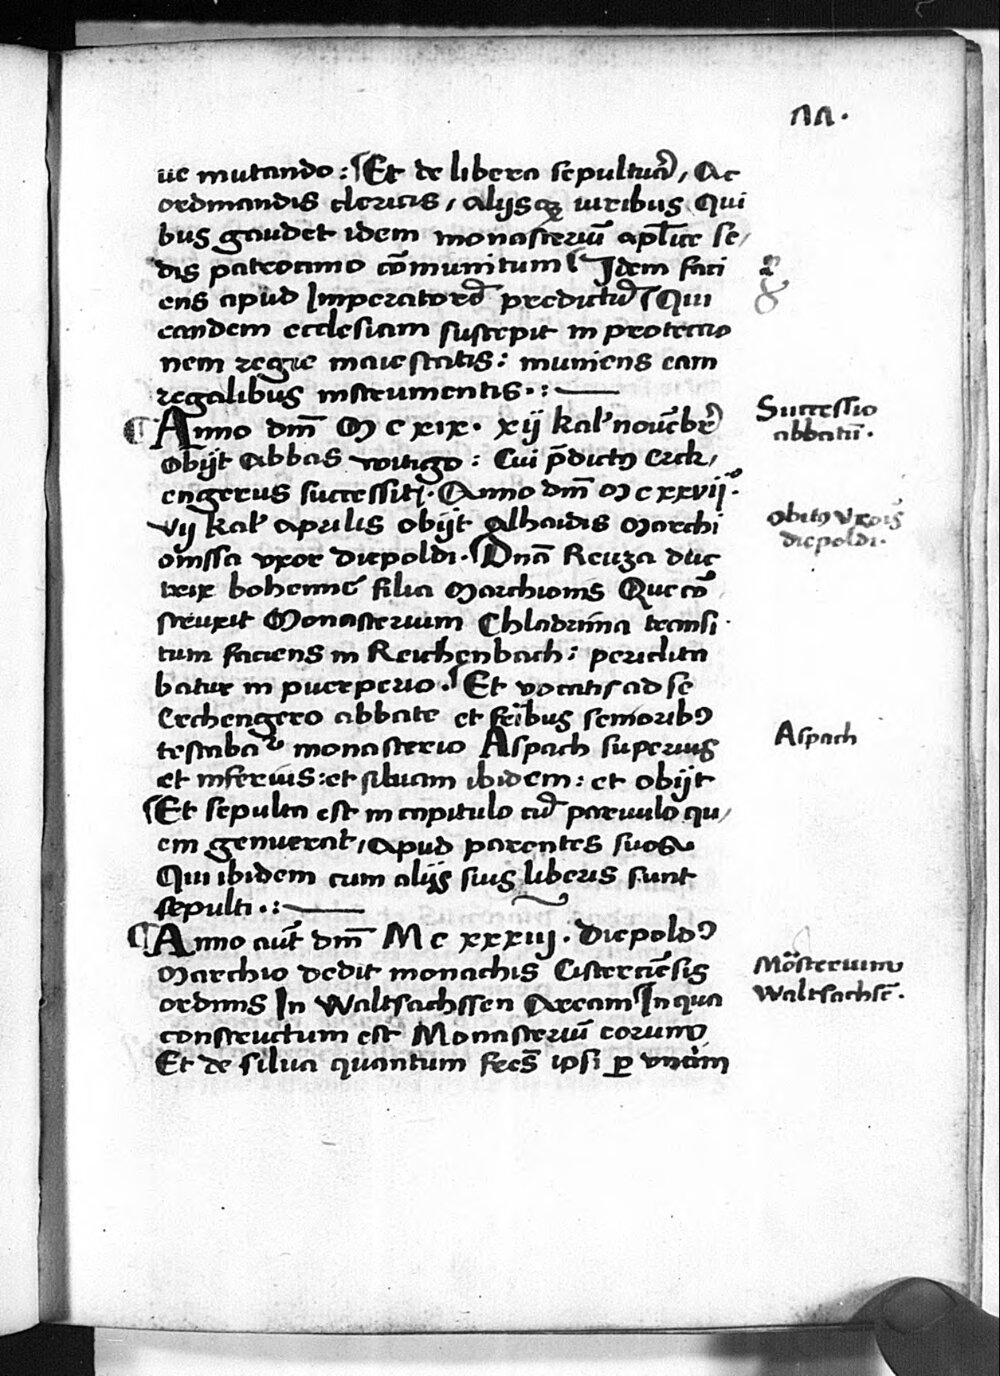 ue mutando : Et de libera sepultura, Ac
ordinandis clericis, alijsq₃ viribus Qui
bus gaudet idem monasteriū aplice se/
dis patrocinio cōmunitum Idem faci
ens apud Imperatorē predictū Qui
eandem ecclesiam suscepit in protectio
nem regie maiestatis : muniens eam
regalibus instrumentis . :
¶ Anno dn̄i M C xix . xij kal' nouēbr̄
Obijt Abbas witigo : Cui p̄dictꝰ Erck,
engerus successit . Anno dn̄i M C xxvij.º
vij kal' aprilis obijt Alhaidis Marchi
onissa vxor diepoldi . Dn̄a Reuza duc
trix bohemie filia Marchionis Que cō
struxit Monasterium Chladrūna transi
tum faciens in Reichenbach : periclita
batur in puerperio . Et vocatis ad se
Erchengero abbate et fr̄ibus senioribꝰ
testabat᷑ monasterio Aspach superius
et inferius : et siluam ibidem : et obijt
Et sepulta est in capitulo cū paruulo qu/
em genuerat, apud parentes suos
Qui ibidem cum alijs suis liberis sunt
sepulti . :
¶ Anno aut̄ dn̄i M C xxxiij . Diepoldꝰ
Marchio dedit monachis Cisterciēsis
ordinis In Waltsachssen Aream In qua
constructum est Monasteriū eorum
Et de silua quantum ipsi ꝑ
Successio
abbatū .
Obitꝰ vxoris
diepoldi .
Aspach
Mōsterium
Waltsachsē .